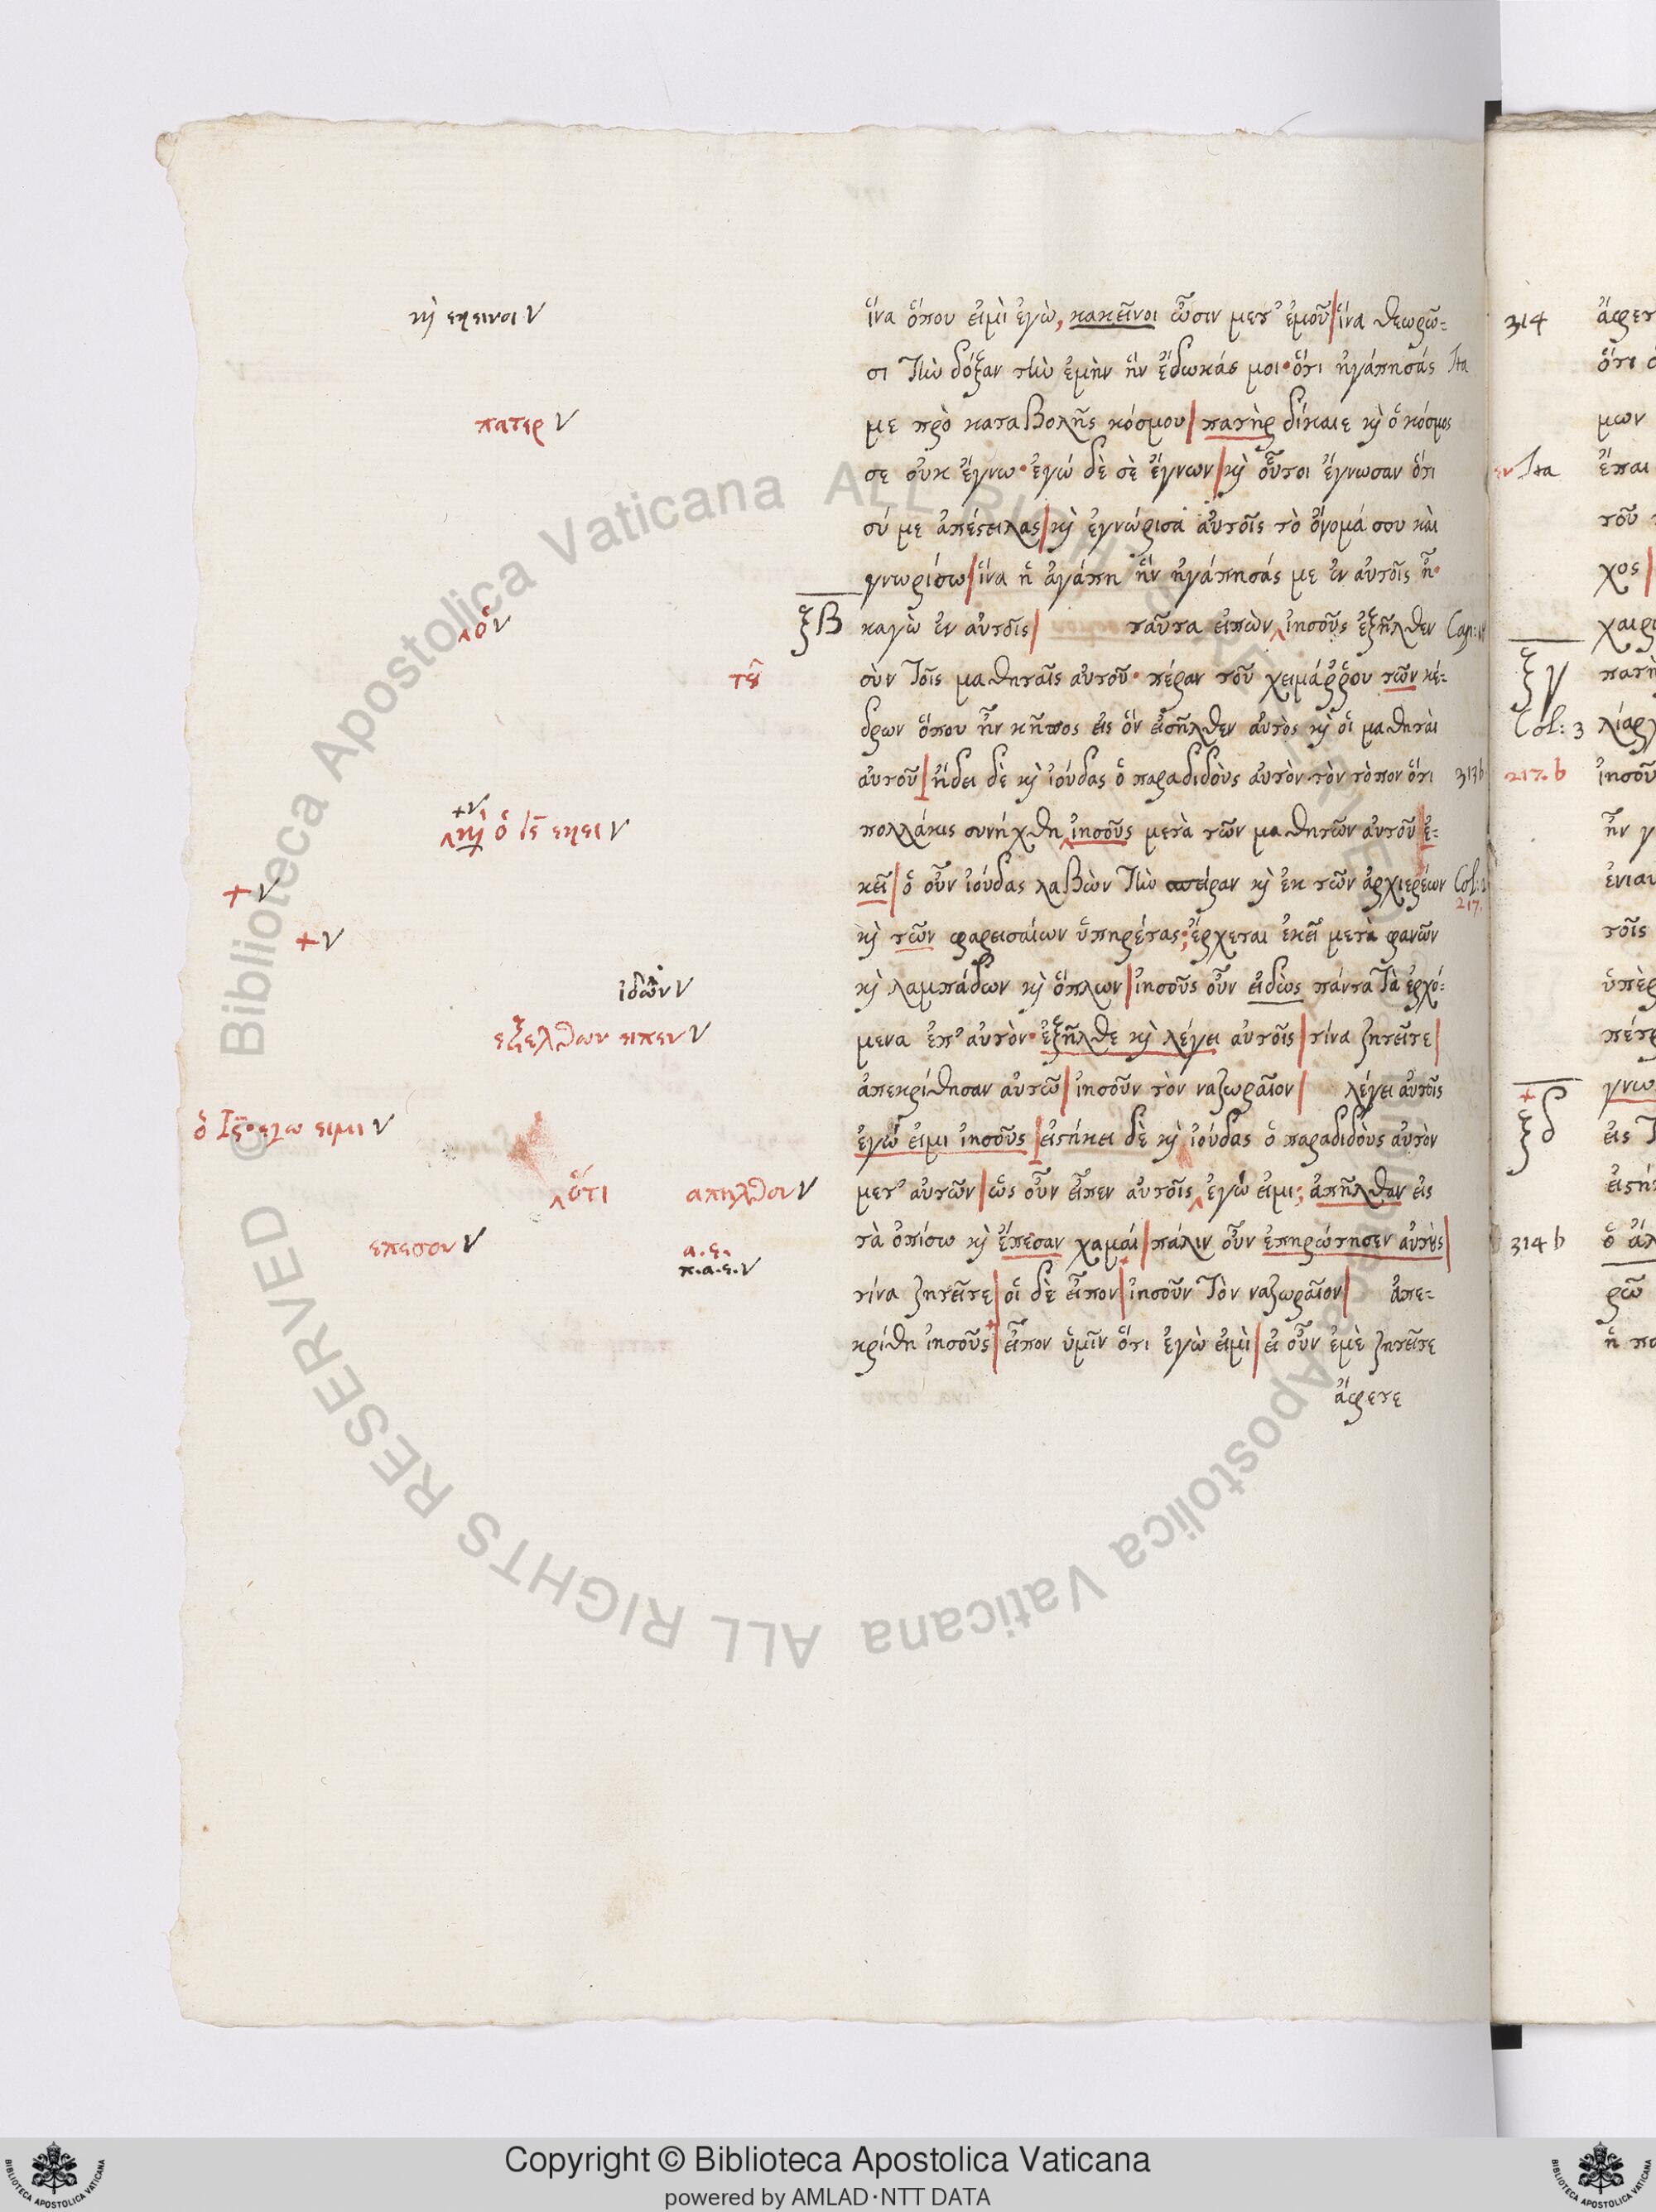 ἵνα ὅπου εἰμὶ ἐγὼ, κακεῖνοι ὦσιν μετ' ἐμοῦ ἵνα θεωρῶ-
σι τὴν δόξαν τὴν ἐμὴν ἣν ἔδωκάς μοι· ὅτι ἠγάπησάς
με πρὸ καταβολῆς κόσμου πατὴρ δίκαιε κὶ ὁ κόσμος
σε οὐκ ἔγνω· ἐγώ δὲ σὲ ἔγνων κὶ οὗτοι ἔγνωσαν ὅτι
σύ με ἀπέστειλας κὶ ἐγνώρισα αὐτοῖς τὸ ὄνομά σου καὶ
γνωρίσω ἵνα ἡ ἀγάπη ἣν ἠγάπησάς με ἐν αὐτοῖς ᾖ·
καγὼ ἐν αὐτοῖς ταῦτα εἰπὼν ἰησοῦς ἐξῆλθεν
σὺν τοῖς μαθηταῖς αὐτοῦ· πέραν τοῦ χειμάῤῥου τῶν κέ-
δρων ὅπου ἦν κῆπος εἰς ὃν εἰσῆλθεν αὐτὸς κὶ οἱ μαθηταὶ
αὐτοῦ ᾔδει δὲ κὶ ἰούδας ὁ παραδιδοὺς αὐτὸν τὸν τόπον ὅτι
πολλάκις συνήχθη ἰησοῦς μετὰ τῶν μαθητῶν αὐτοῦ ἐ-
κεῖ ὁ οὖν ἰούδας λαβὼν τὴν σπείραν κὶ ἐκ τῶν ἀρχιερέων
κὶ τῶν φαρεισαίων ὑπηρέτας; ἔρχεται ἐκεῖ μετὰ φανῶν
κὶ λαμπάδων κὶ ὅπλων ἰησοῦς οὖν εἰδὼς πάντα τὰ ἐρχό-
μενα ἐπ' αὐτὸν· ἐξῆλθε κὶ λέγει αὐτοῖς τίνα ζητεῖτε
ἀπεκρίθησαν αὐτῶ ἰησοῦν τὸν ναζωραῖον λέγει αὐτοῖς
ἐγώ εἰμι ἰησοῦς εἱστήκει δὲ κὶ ἰούδας ὁ παραδιδοὺς αὐτὸν
μετ' αὐτῶν ὡς οὖν εἶπεν αὐτοῖς ἐγώ εἰμι; ἀπῆλθαν εἰς
τὰ ὀπίσω κὶ ἔπεσαν χαμαί πάλιν οὖν ἐπηρώτησεν αὐτοὺς
τίνα ζητεῖτε οἱ δὲ εἶπον ἰησοῦν τὸν ναζωραῖον ἀπε-
κρίθη ἰησοῦς εἶπον ὑμῖν ὅτι ἐγὼ εἰμὶ εἰ οὖν ἐμὲ ζητεῖτε
ἄφετε
κὶ εκεινοι ν
πατερ ν
ὁ ν
ξβ
τȣ͂
+ν
κὶ ὁ ις εκει ν
+ ν
+ ν
ἰδὼν ν
εξελθων ειπεν ν
ὁ Ις· εγω ειμι ν
ὅτι απηλθον ν
επεσον ν
α.ε.
π.α.ε. ν
Ita
313b
217.
314
Ita
ξγ
Col: 3
217. b
ξδ
314 b
Copyright © Biblioteca Apostolica Vaticana
powered by AMLAD·NTT DATA
© Biblioteca Apostolica Vaticana ALL RIGHTS RESERVED